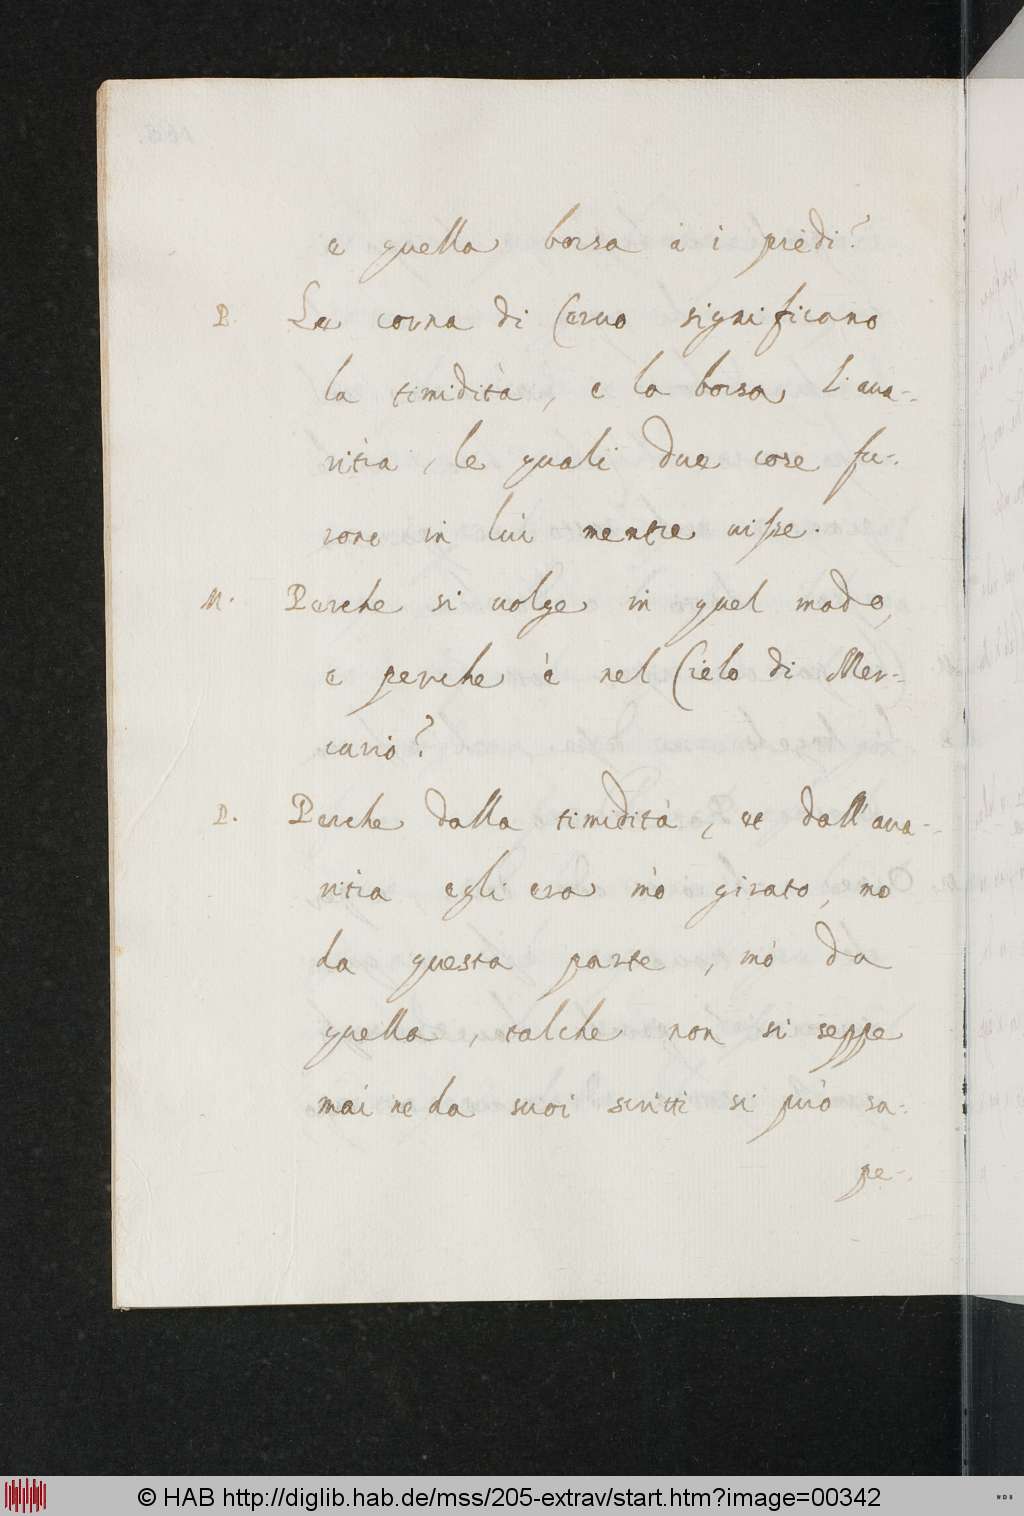 e quella borsa à i piedi?
P. Le corna di Ceruo significano
la timidità, e la borsa l'aua-
ritia, le quali due cose fu-
rono in lui mentre uisse.
M. Perche si uolge in quel modo,
e perche è nel Cielo di Mer-
curio?
P. Perche dalla timidità, et dall'aua-
ritia egli era mò girato, mo
da questa parte, mò da
quella, talche non si seppe
mai ne da suoi scritti si può sa-
pe-
© HAB http://diglib.hab.de/mss/205-extrav/start.htm?image=00342